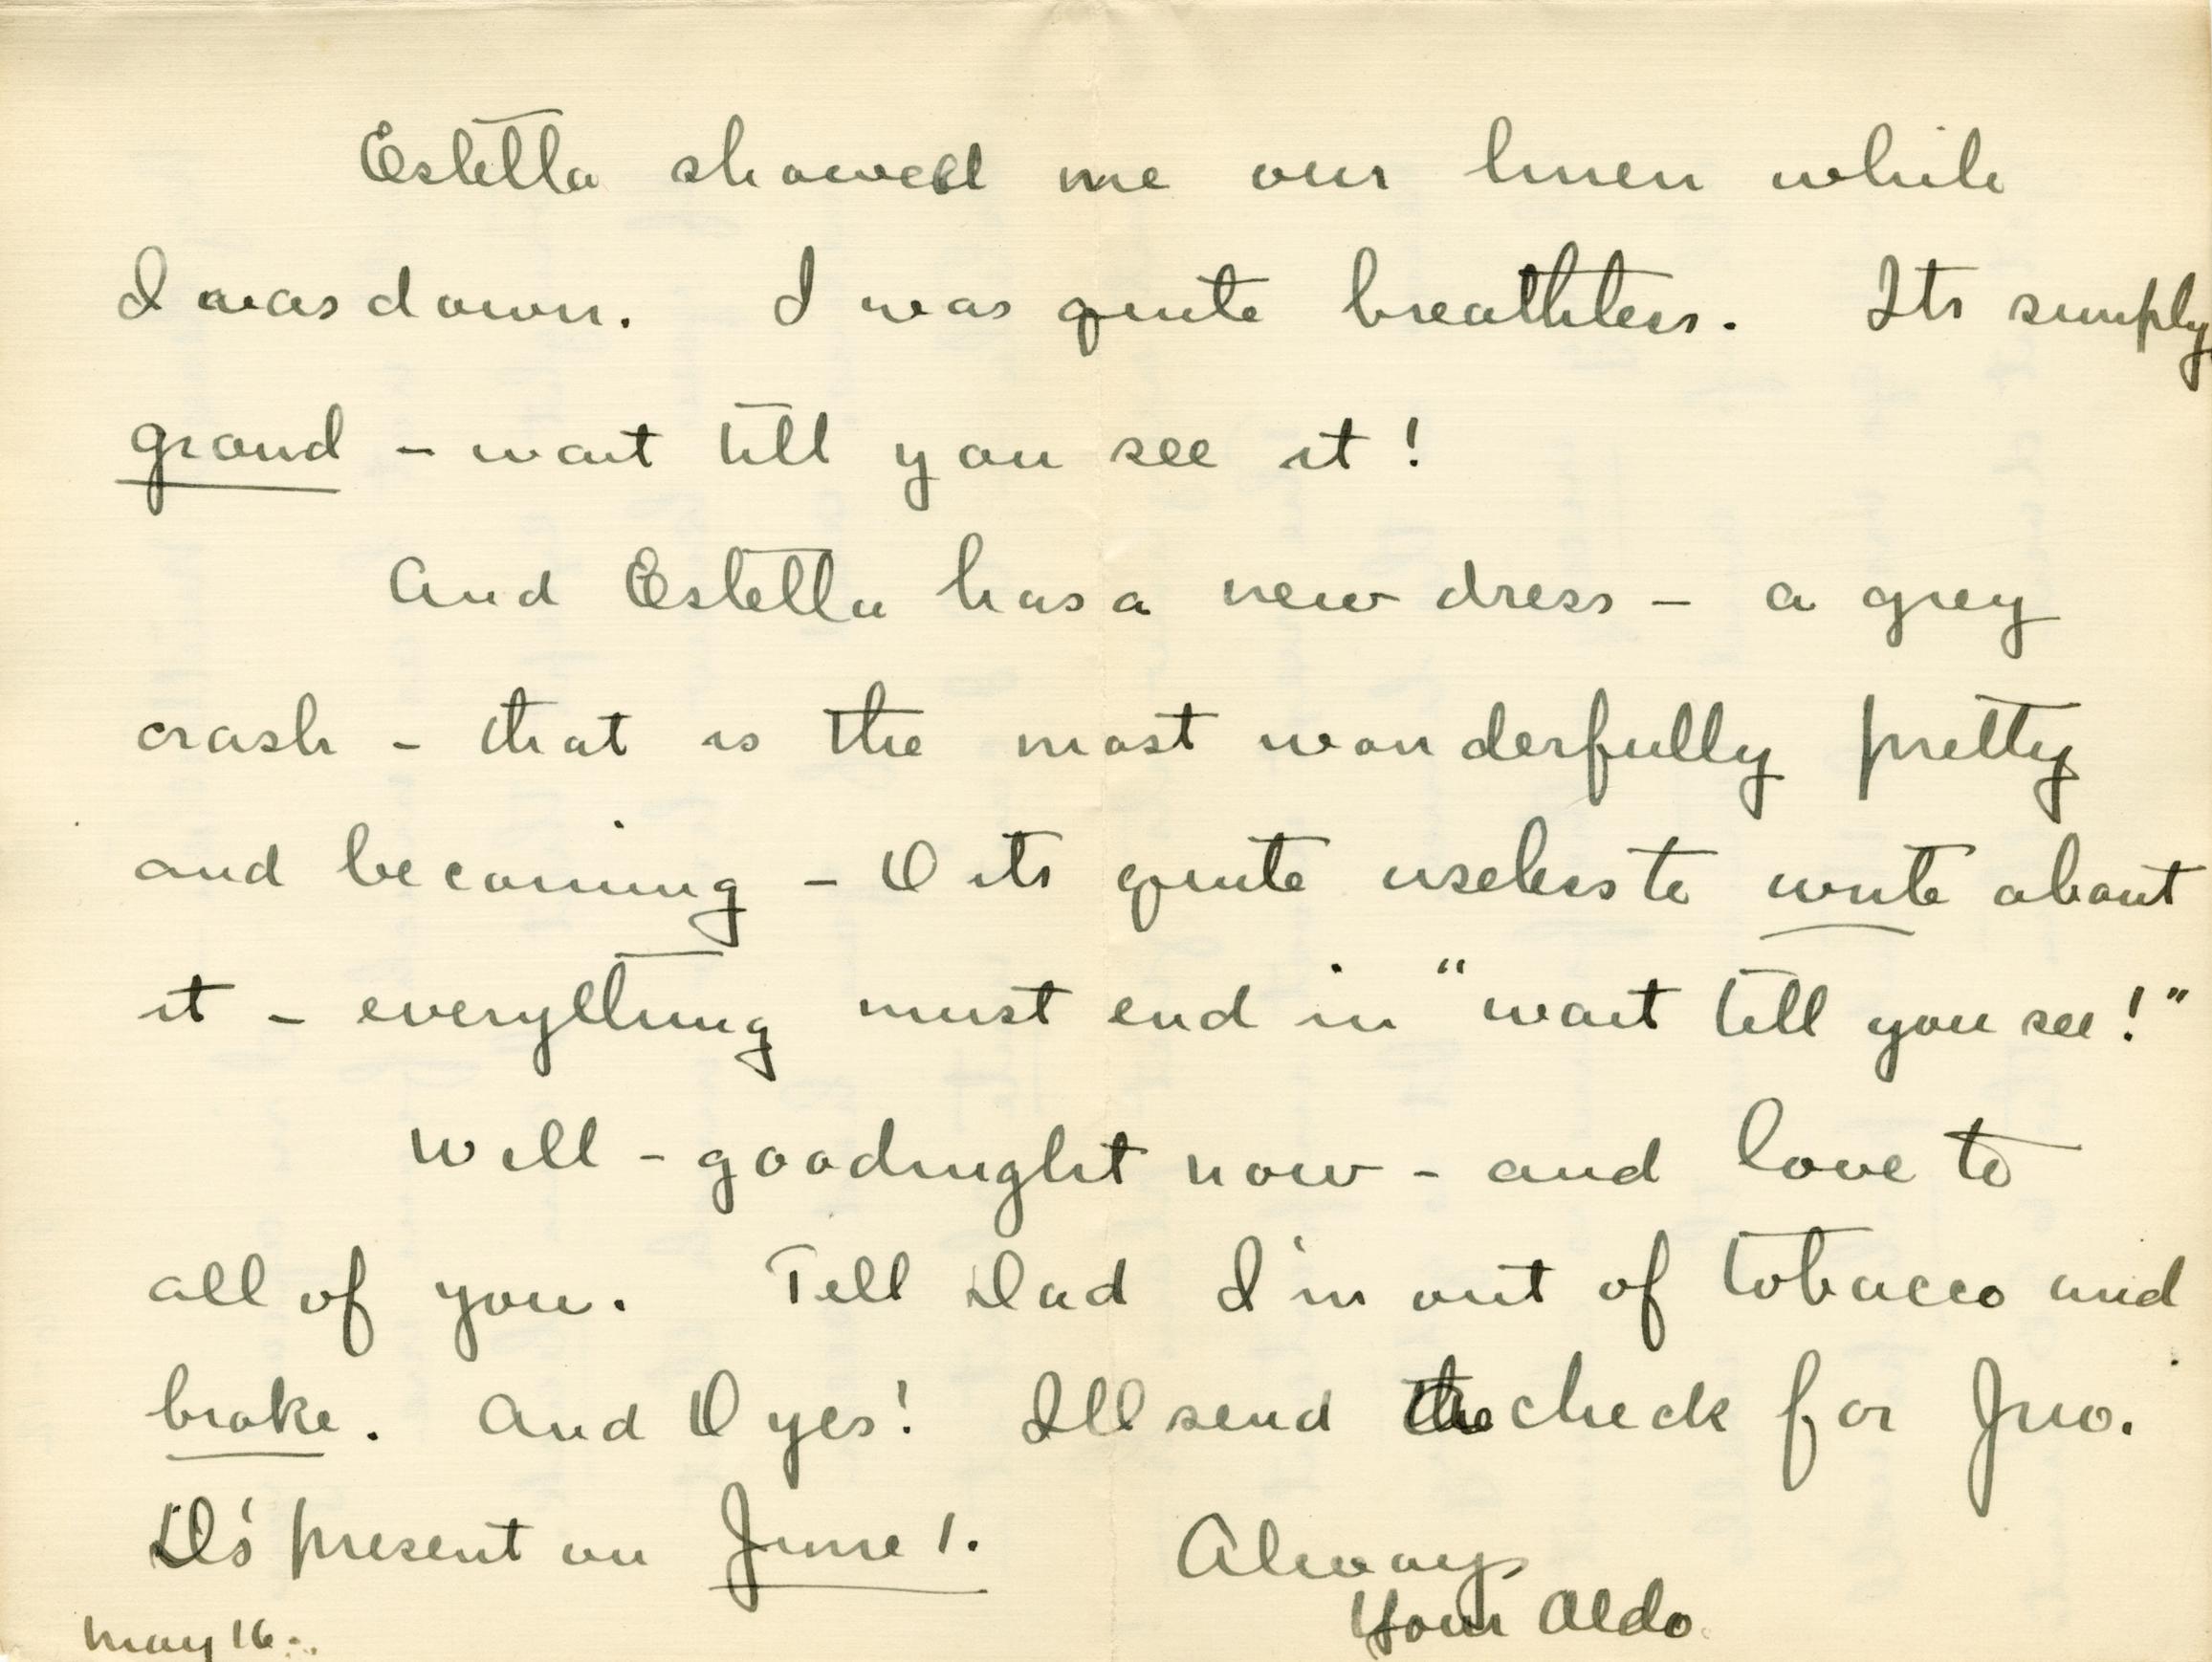 Estella showed me our linen while
I was down. I was quite breathless. Its simply
grand - wait till you see it!
And Estella has a new dress - a grey
crash - that is the most wonderfully pretty
and becoming - O its quite useless to write about
it - everything must end in "wait till you see!"
Well - goodnight now - and love to
all of you. Tell Dad I'm out of tobacco and
broke. And O yes! Ill send the check for Jno.
D's present on June 1. Always
Your Aldo
May 16.